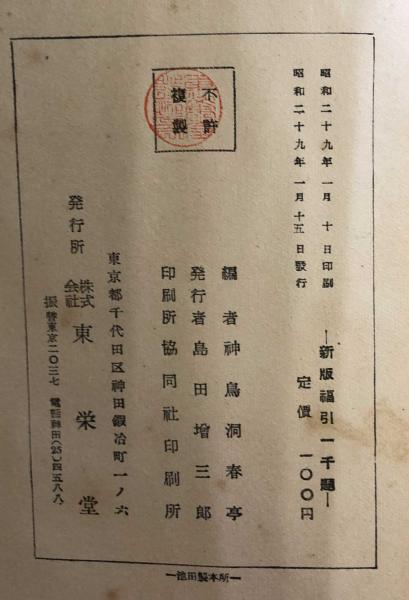 昭和二十九年一月十日印刷
昭和二十九年一月十五日發行
―新版福引一千題―
定價 一〇〇円
不許複製
編者 神鳥洞春亭
発行者 島田増三郎
印刷所 協同社印刷所
東京都千代田区神田鍛冶町一ノ六
発行所 株式会社 東栄堂
振替東京二〇三七 電話神田(25)四五八八
―池田製本所―